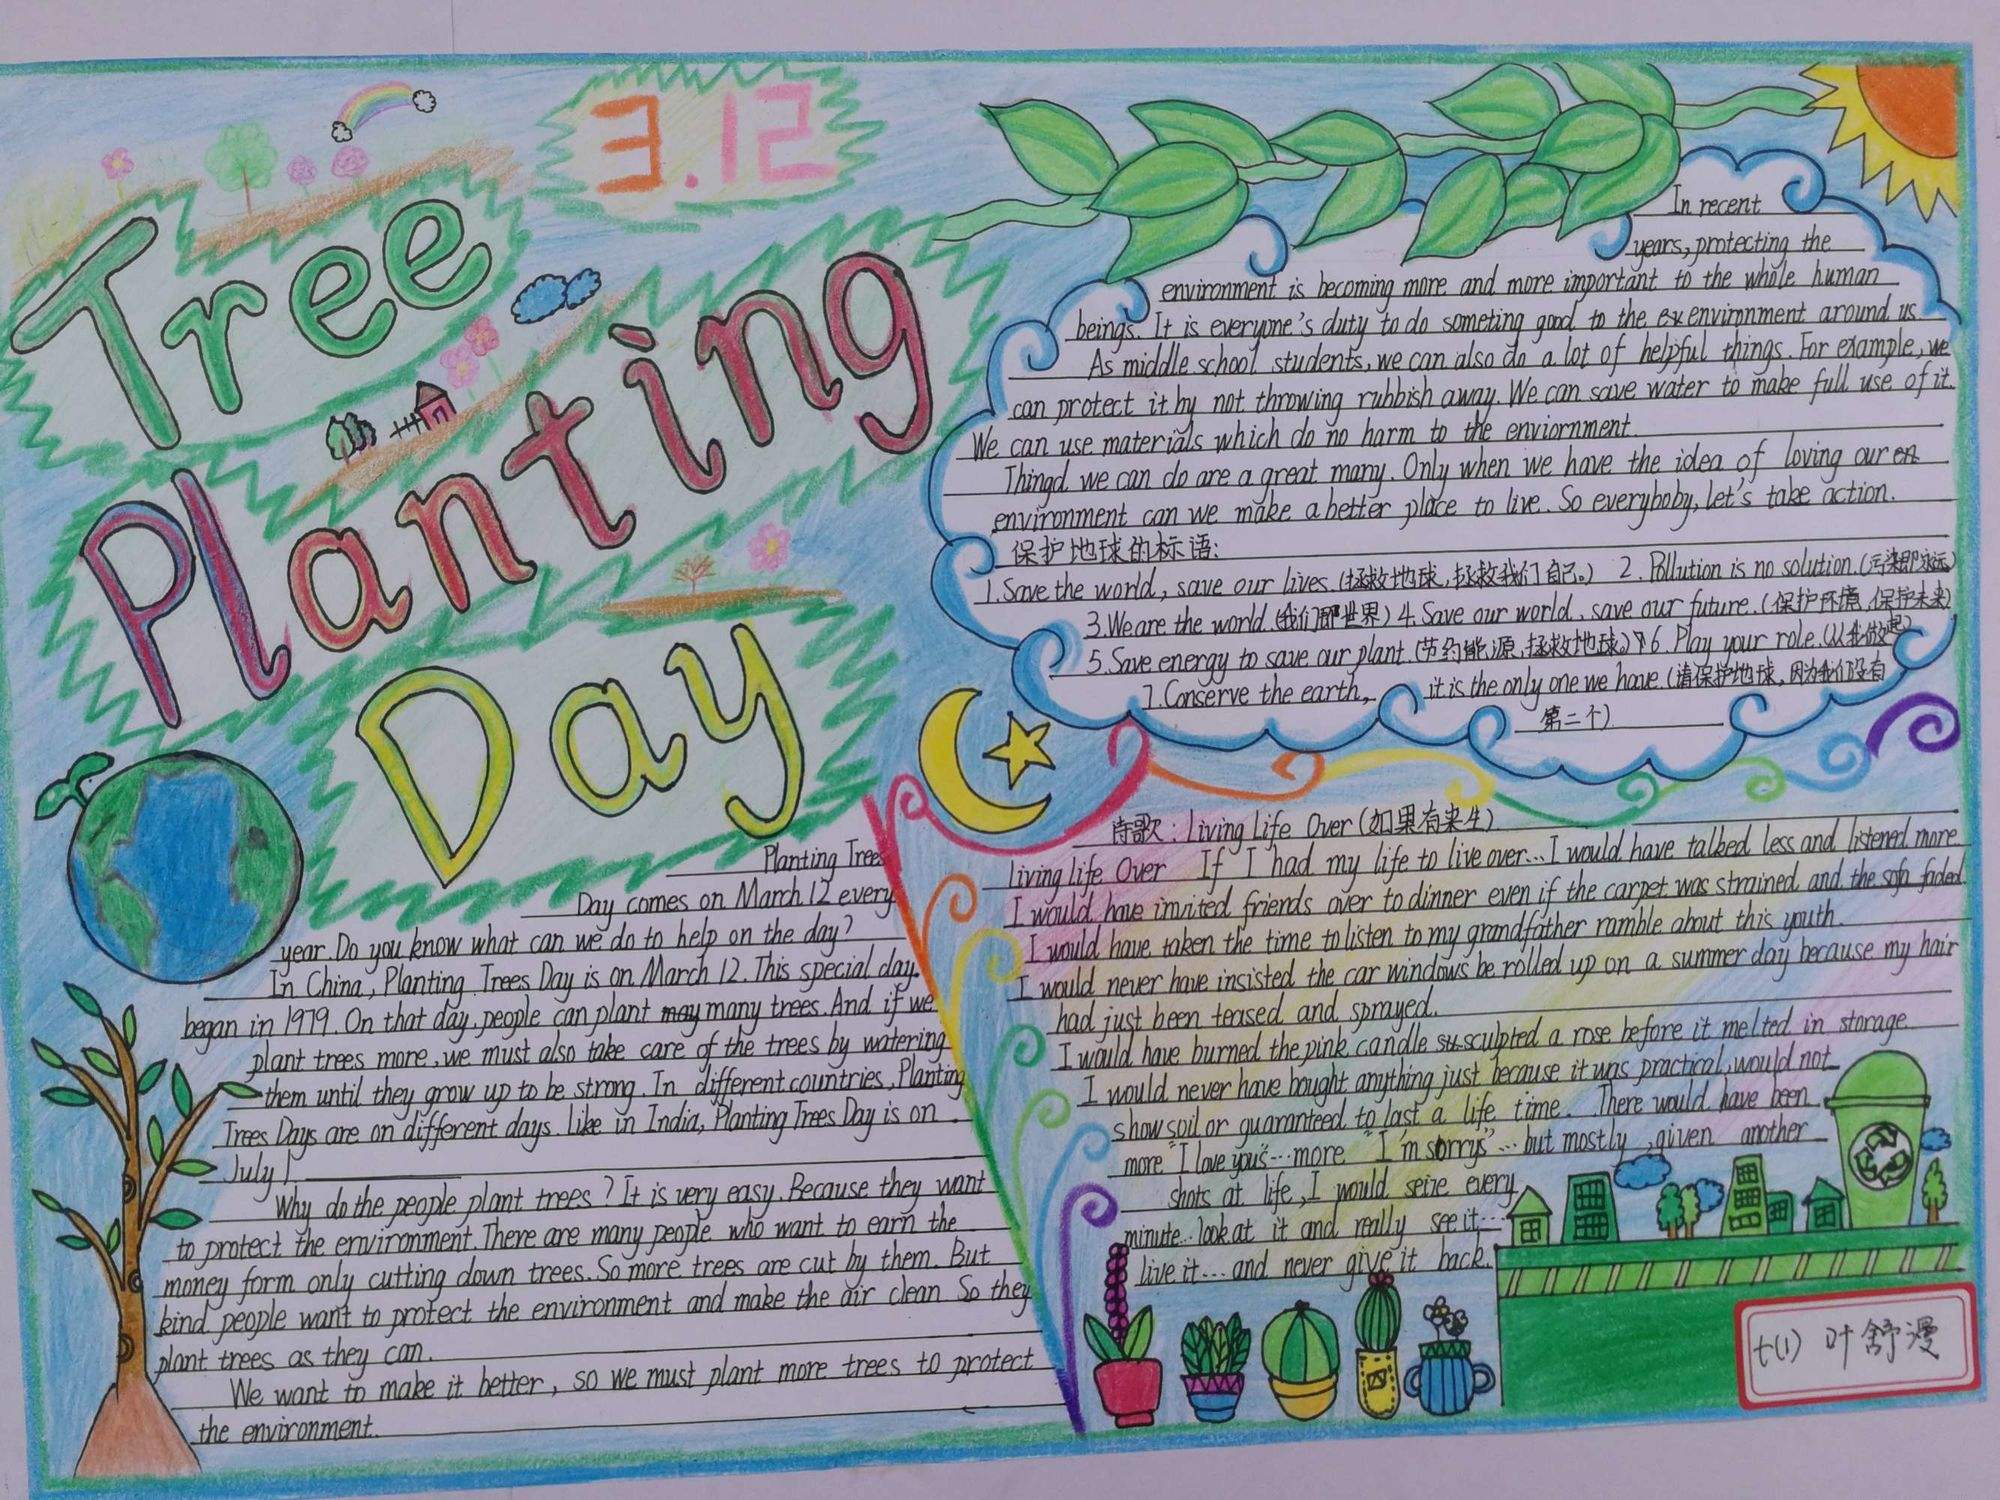 3.12
Tree
Planting
Day
Planting Trees
Day comes on March 12 every
year. Do you know what can we do to help on the day?
In China, Planting Trees Day is on March 12. This special day.
began in 1979. On that day, people can plant many trees. And if we
plant trees more, we must also take care of the trees by watering
them until they grow up to be strong. In different countries, Planting
Trees Days are on different days. like in India, Planting Trees Day is on
July 1
Why do the people plant trees? It is very easy. Because they want
to protect the environment. There are many people who want to earn the
money form only cutting down trees. So more trees are cut by them. But
kind people want to protect the environment and make the air clean. So they
plant trees as they can.
We want to make it better, so we must plant more trees to protect
the environment.
In recent
years, protecting the
environment is becoming more and more important to the whole human
beings. It is everyone's duty to do someting good to the environment around us
As middle school students, we can also do a lot of helpful things. For example, we
can protect it by not throwing rubbish away. We can save water to make full use of it.
We can use materials which do no harm to the enviornment.
Thingd we can do are a great many. Only when we have the idea of loving our
environment can we make a better place to live. So everyboby, let's take action.
保护地球的标语:
1. Save the world, save our lives. (拯救地球,拯救我们自己。) 2. Pollution is no solution. (污染即永远)
3. We are the world. (我们即世界) 4. Save our world, save our future. (保护环境,保护未来)
5. Save energy to save our plant. (节约能源,拯救地球。) 6. Play your role. (从我做起)
7. Conserve the earth, it is the only one we have. (请保护地球,因为我们没有
第二个)
诗歌: Living Life Over (如果有来生)
living life Over If I had my life to live over... I would have talked less and listened more
I would have invited friends over to dinner even if the carpet was strained and the sofa faded.
I would have taken the time to listen to my grandfather ramble about this youth.
I would never have insisted the car windows be rolled up on a summer day because my hair
had just been teased and sprayed.
I would have burned the pink candle sculpted a rose before it melted in storage
I would never have bought anything just because it was practical, would not
show soil or guaranteed to last a life time. There would have been
more "I love yous"... more "I'm sorrys"... but mostly, given another
shots at life, I would seize every
minute... look at it and really see it...
live it... and never give it back.
七(1) 叶舒漫